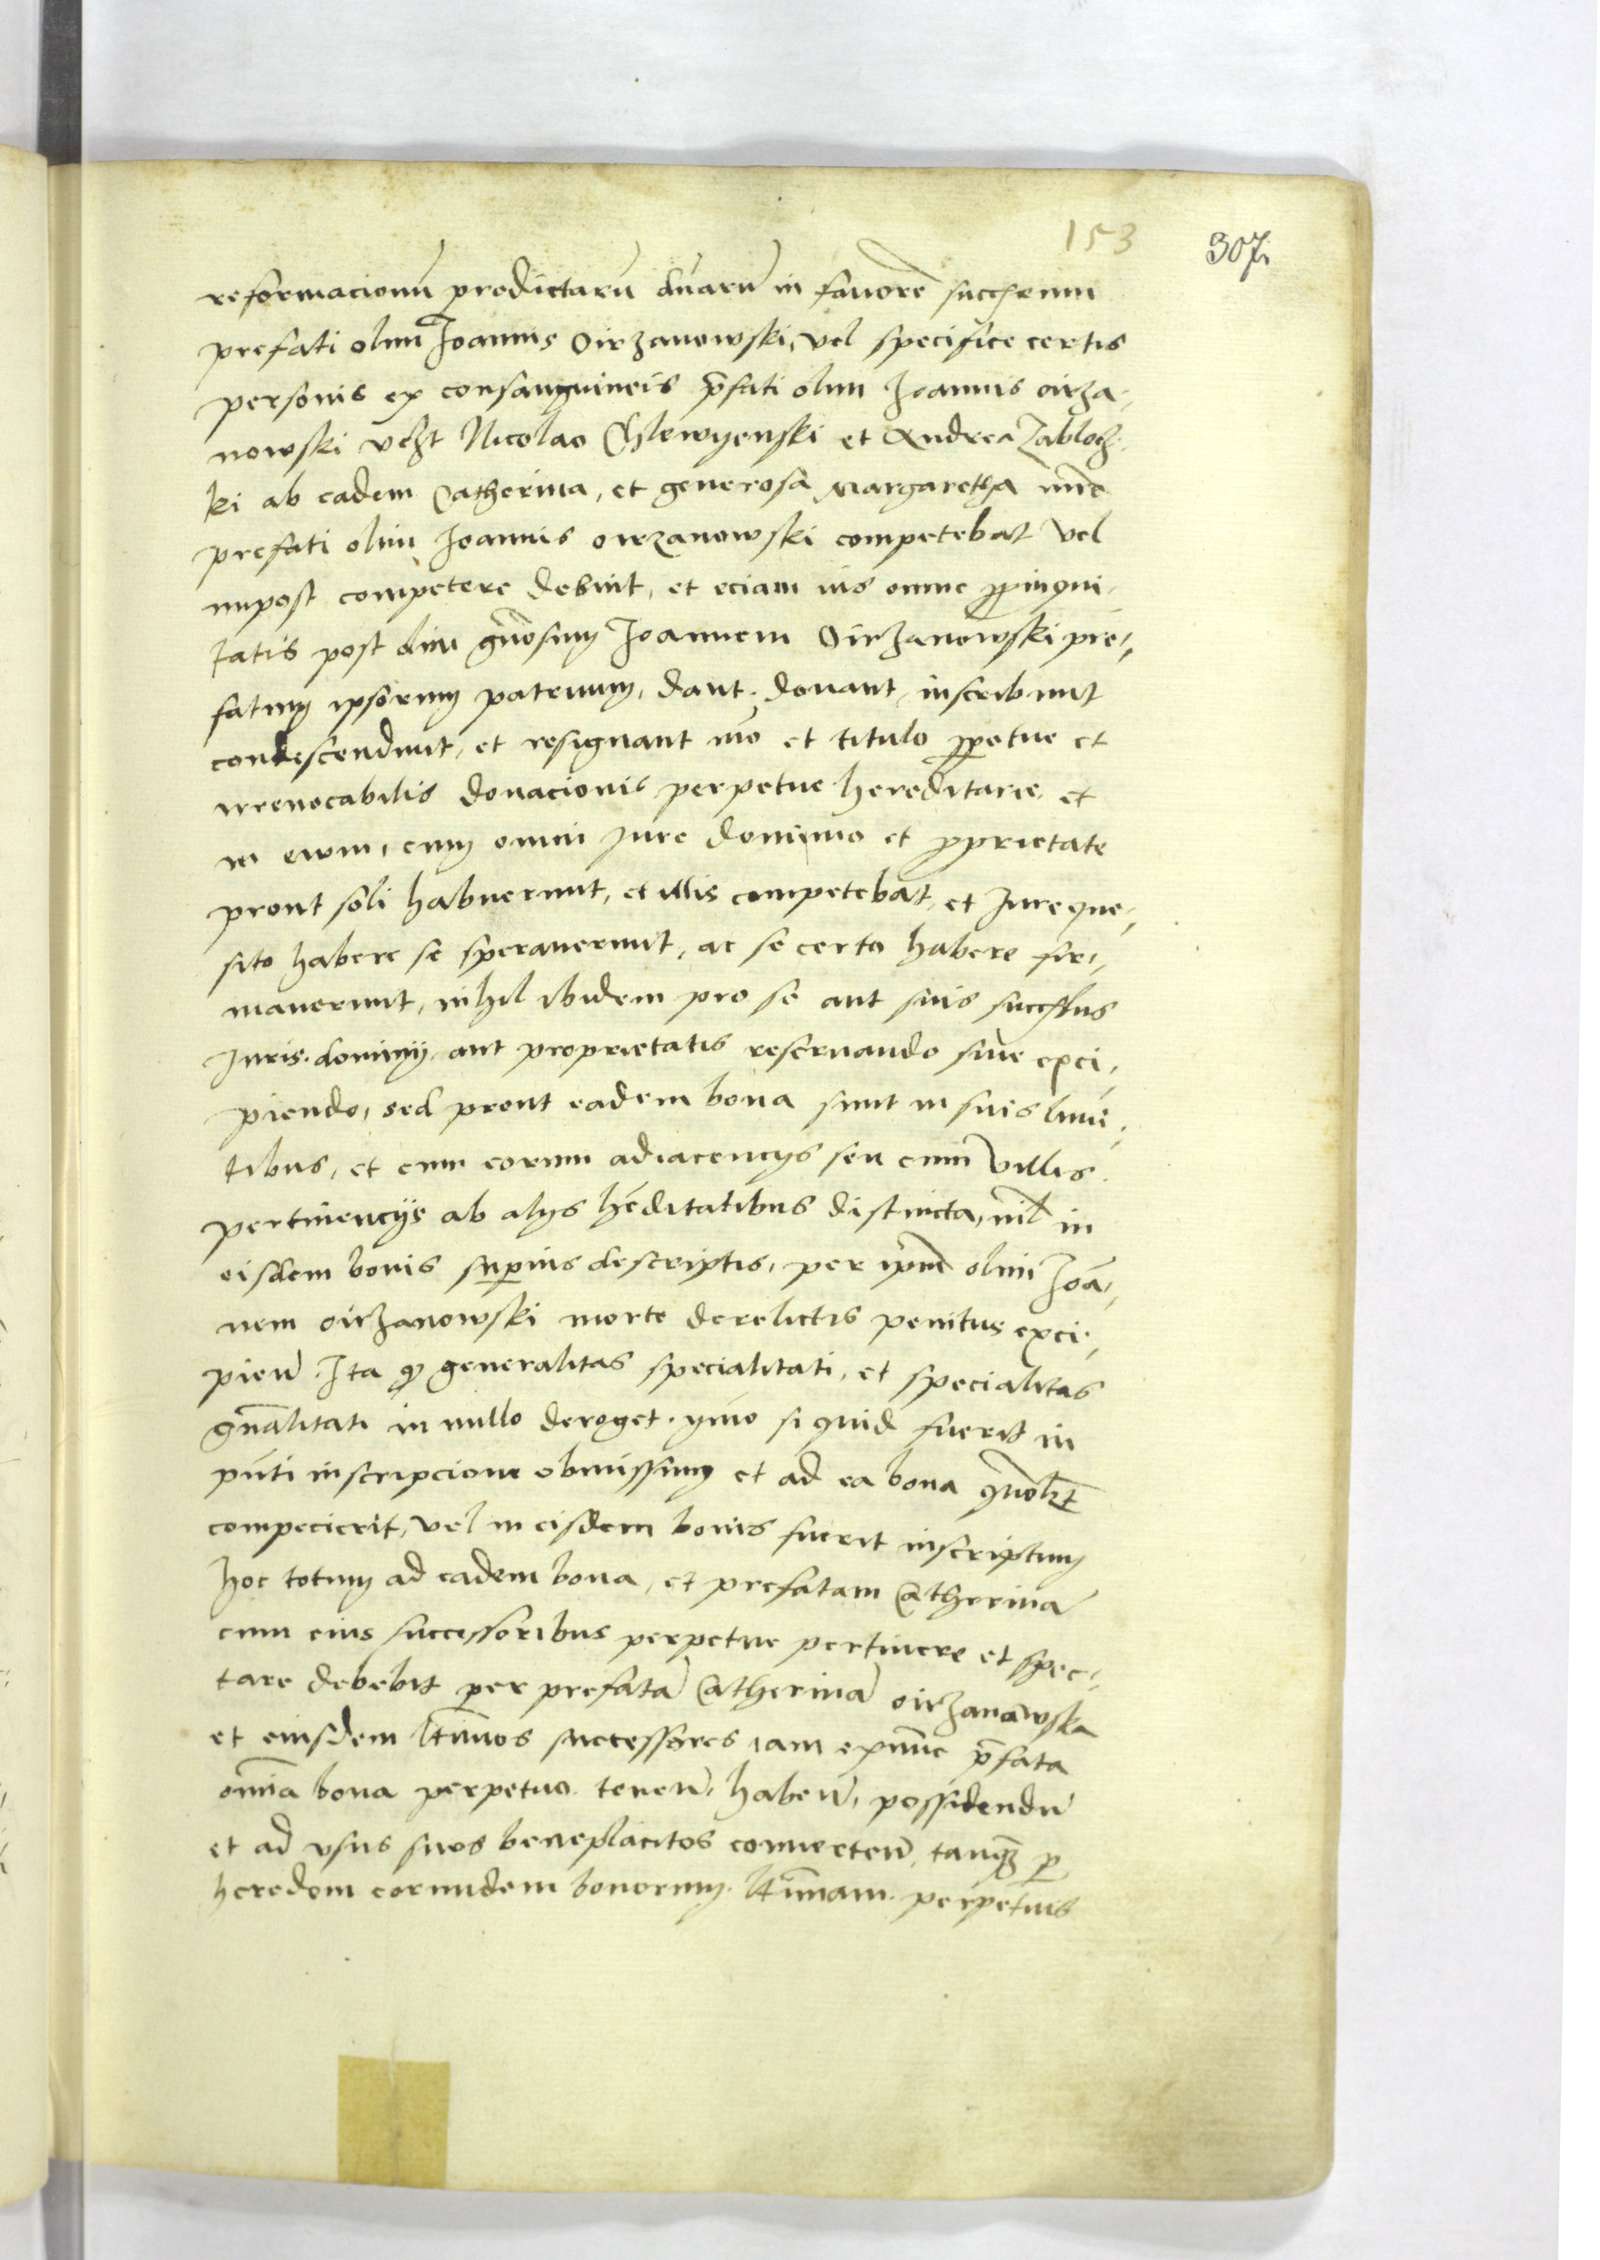 153
307.
reformacionū predictarū duarū in fauorē succſ̄orum
prefati olim Joannis Oirzanowski, vel specifice certis
personis ex consanguineis p̄fati olim Joannis oirza-
nowski vcꝫt Nicolao Chlewyenski et Andrea Zabloczˍ
ki ab eadem Catherina, et generosa Margaretha mr̄e
prefati olim Joannis oirzanowski competebat vel
inpost competere debuit, et eciam ius omne ꝓpinqui-
tatis post olim gn̄osum Joannem Oirzanowski pre-
fatum ipsorum patruum, dant. donant, inscribunt
condescendunt, et resignant mō et titulo ꝑpetue et
irreuocabilis donacionis perpetue hereditarie, et
in ewm, cum omni jure dominio et ꝓprietate
prout soli habuerunt, et illis competebat, et Jure que-
sito habere se sperauerunt, ac se certo habere fir-
mauerunt, nihil ibidem pro se aut suis succſſ̄ibus
Juris. dominij aut proprietatis reseruando siue exci-
piendo, sed prout eadem bona sunt in suis limi-
tibus, et cum eorum adiacencijs seu cum villis.
pertinencijs ab alijs hēditatibus distincta, nil in
eisdem bonis suꝑius descriptis, per ip̄m olim Joā-
nem oirzanowski morte derelictis penitus exci-
pieñ. Ita ꝙ generalitas specialitati, et specialitas
gn̄alitati in nullo deroget. ymo si quid fuerit in
pn̄ti inscripcione obmissum et ad ea bona quolꝫt
compecierit, vel in eisdem bonis fuerit inscriptum
hoc totum ad eadem bona, et prefatam Catherinā
cum eius successoribus perpetue pertinere et spec-
tare debebit per prefatā Catherinā oirzanowska
et eiusdem ltīmos successores iam exnunc p̄fata
omīa bona perpetuo teneñ, habeñ, possidendū
et ad vsus suos beneplacitos conuerteñ, tanqꝫ ꝑ
heredem eorundem bonorum. ltīmam. perpetuis